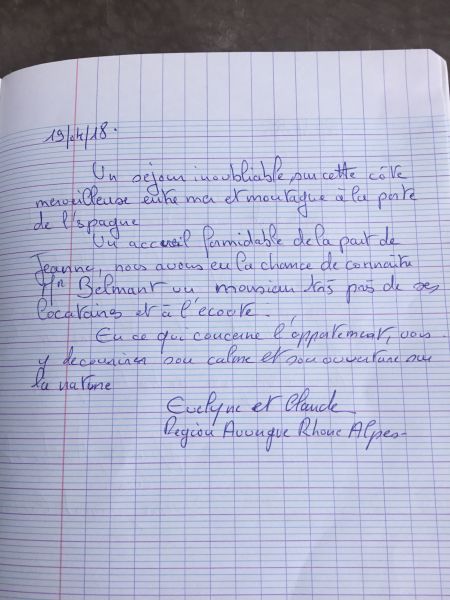 19/04/18.
Un séjour inoubliable sur cette côte
merveilleuse entre mer et montagne à la porte
de l'Espagne
Un accueil formidable de la part de
Jeanne, nous avons eu la chance de connaitre
Mr Belmant un monsieur très près de ses
locataires et à l'écoute.
En ce qui concerne l'appartement, vous
y decouvrirez son calme et son ouverture sur
la nature
Evelyne et Claude
Region Auvergne Rhone Alpes